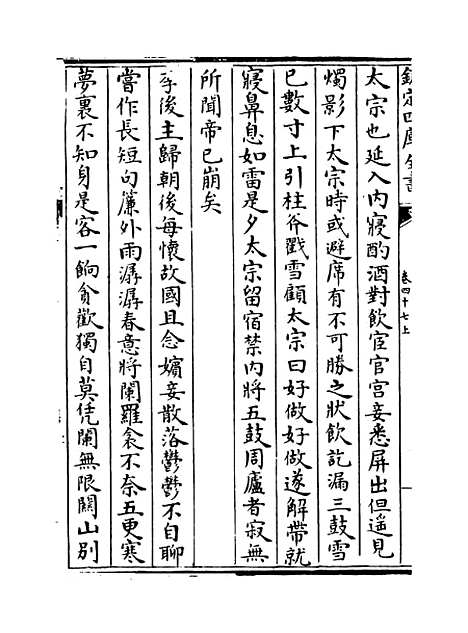 欽定四庫全書
卷四十七上
太宗也延入內寝酌酒對飲宦官宫妾悉屏出但遥見
燭影下太宗時或避席有不可勝之狀飲訖漏三鼓雪
已數寸上引柱斧戳雪顧太宗曰好做好做遂解帶就
寝鼻息如雷是夕太宗留宿禁內將五鼓周廬者寂無
所聞帝已崩矣
李後主歸朝後每懷故國且念嬪妾散落鬱鬱不自聊
嘗作長短句簾外雨潺潺春意將闌羅衾不奈五更寒
夢裏不知身是客一餉貪歡獨自莫凭闌無限關山别